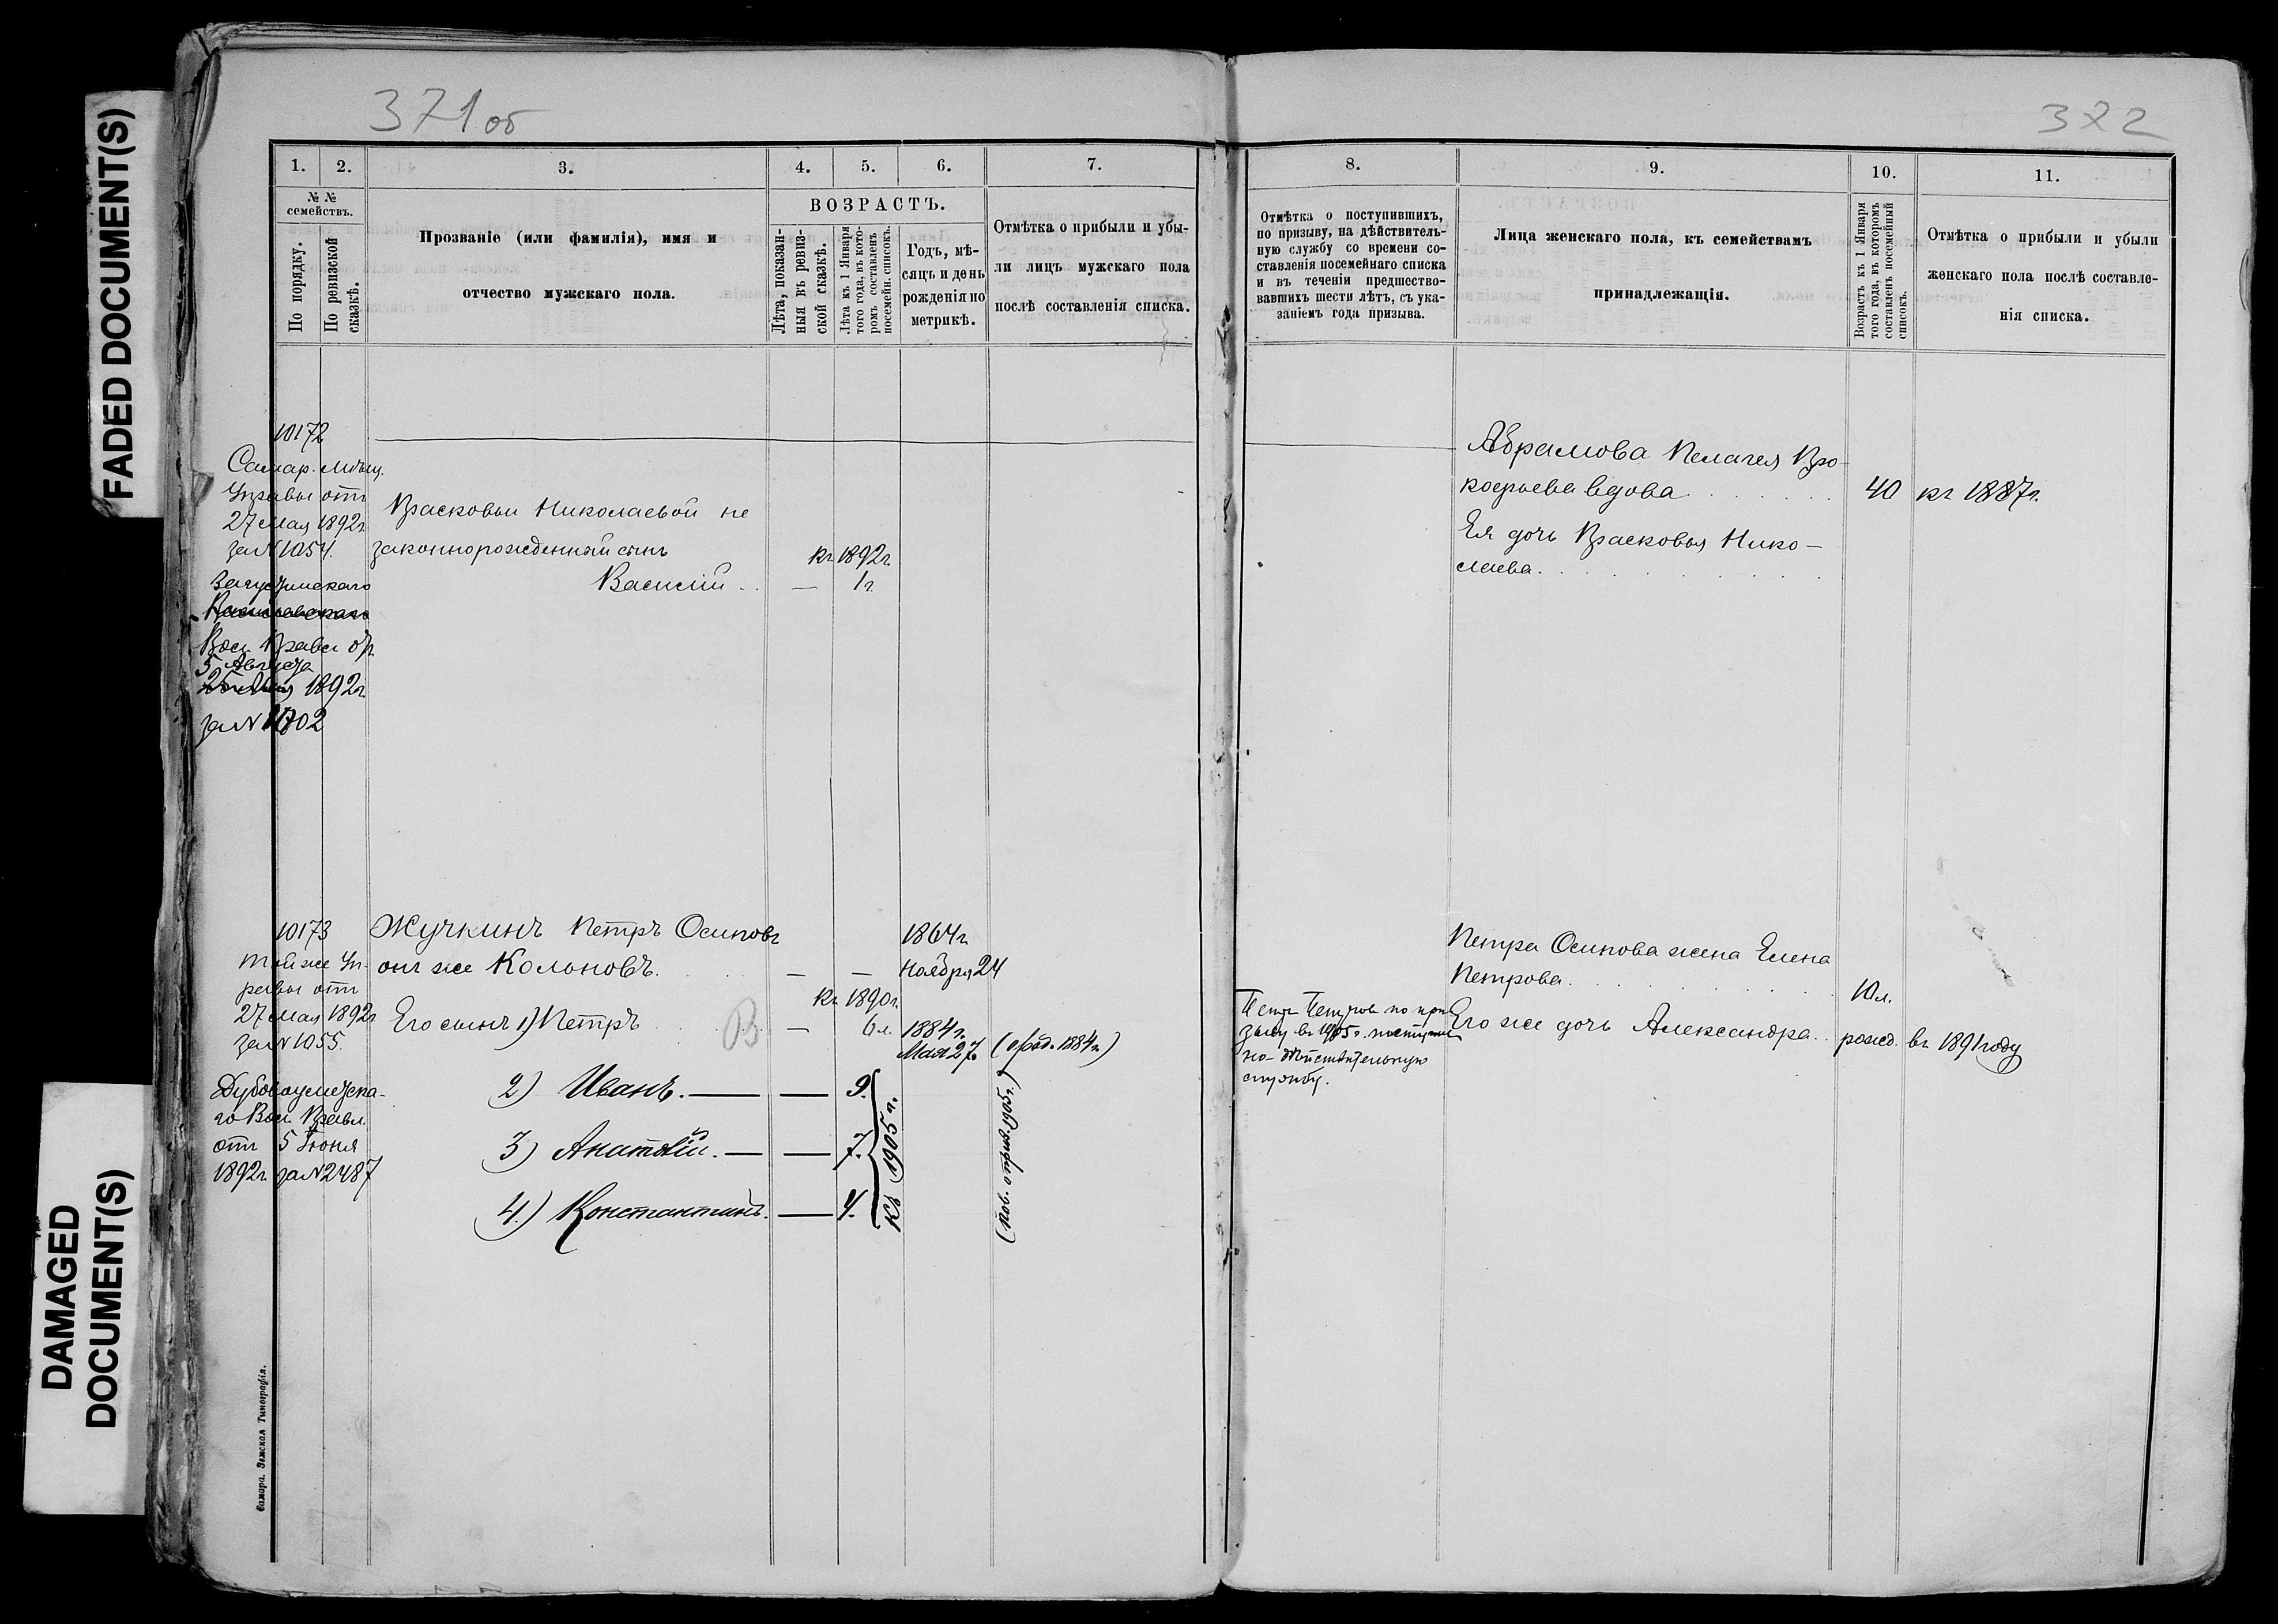 FADED DOCUMENT(S)
DAMAGED
DOCUMENT(S)
371 об
1.
2.
3.
4.
5.
6.
7.
№ №
семействъ.
По порядку.
По ревизской
сказкѣ.
Прозваніе (или фамилія), имя и
отчество мужскаго пола.
ВОЗРАСТЪ.
Лѣта, показан-
ныя въ ревиз-
ской сказкѣ.
Лѣта къ 1 Января
того года, въ кото-
ромъ составленъ
посемейн. списокъ.
Годъ, мѣ-
сяцъ и день
рожденія по
метрикѣ.
Отмѣтка о прибыли и убы-
ли лицъ мужскаго пола
послѣ составленія списка.
10172
Самар. Мѣщ.
Управы отъ
27 Мая 1892г
за N 1054.
Вол. Правл. от
5 Августа
1892г.
за N
Прасковьи Николаевой не
законнорожденный сынъ
Василій . .
къ 1892г.
— 1г.
10173
Той же Уп-
равы отъ
27 Мая 1892г
за N 1055.
Дубовоуметска-
го Вол. Правл.
отъ 5 Іюня
1892г. за N 2487
Жучкинъ Петръ Осиповъ
онъ же Кольновъ. — —
1864г.
Ноября 24
къ 1890г.
Его сынъ 1) Петръ В — 6 л.
1884г.
Мая 27.
2) Иванъ. — — 9.
3) Анатолій. — — 7.
4.) Константинъ. — 4.
къ 1905 г.
Самара. Земская Типографія.
322
8.
9.
10.
11.
Отмѣтка о поступившихъ,
по призыву, на дѣйствитель-
ную службу со времени со-
ставленія посемейнаго списка
и въ теченіи предшество-
вавшихъ шести лѣтъ, съ ука-
заніемъ года призыва.
Лица женскаго пола, къ семействамъ
принадлежащія.
Возрастъ къ 1 Января
того года, въ которомъ
составленъ посемейный
списокъ.
Отмѣтка о прибыли и убыли
женскаго пола послѣ составле-
нія списка.
Абрамова Пелагея Про-
кофьева вдова . . . . . . 40 къ 1887г.
Ея дочь Прасковья Нико-
лаева. . . . . . . .
Петра Осипова жена Елена
Петрова. . . . . . . 10 л.
Петръ Петровъ по при-
зыву въ 1905 г. поступилъ
на дѣйствительную
службу.
Его же дочь Александра . . рожд. въ 1891 году